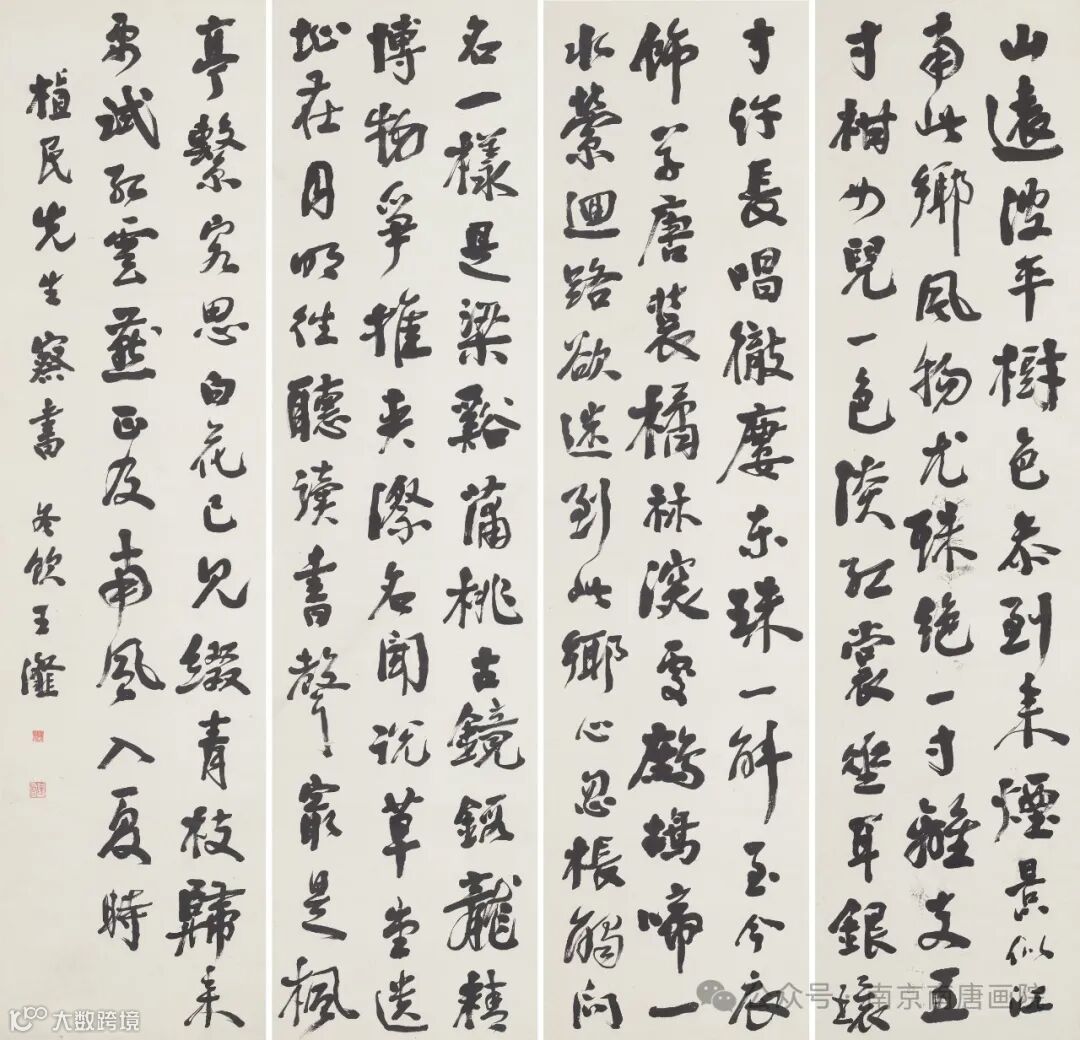 山遠波平樹色参到来煙景似江
南此鄉風物尤殊絕一寸離支五
寸柑女兒一色淡紅裳垂耳銀環
寸許長唱徹廔東珠一斛至今衣
飾學唐裝橘林深處鷓鴣啼一
水縈迴路欲迷到此鄉心忽悵觸問
名一樣是梁谿蒲桃古鏡鍛龍精
博物爭推夾漈名聞說草堂遺
址在月明往聽讀書聲最是楓
亭繫客思白花已見綴青枝歸来
試紅雲燕正及南風入夏時
植民先生察書 冬飲王瀣
公众号·南京南唐画院
100 大数跨境